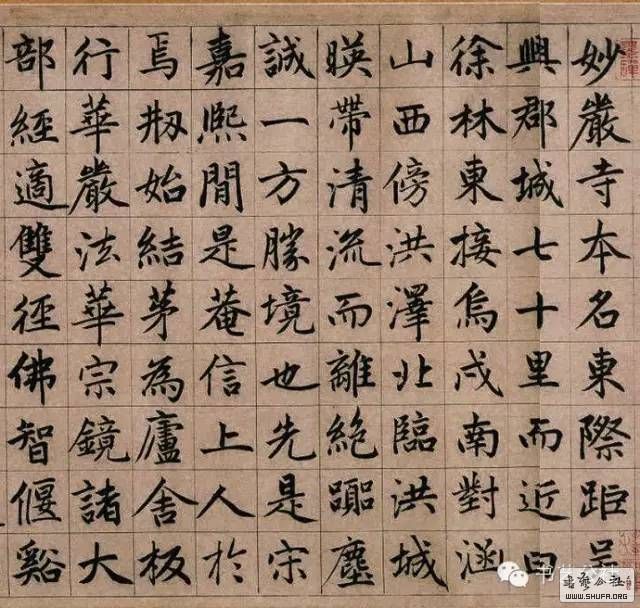 妙嚴寺本名東際距吳
興郡城七十里而近曰
徐林東接烏戍南對涵
山西傍洪澤北臨洪城
暎帶清流而離絕塵
誠一方勝境也先是宋
嘉熙間是菴信上人於
焉刱始結茅為廬舍板
行華嚴法華宗鏡諸大
部經適雙徑佛智偃谿
WWW.SHUFA.ORG